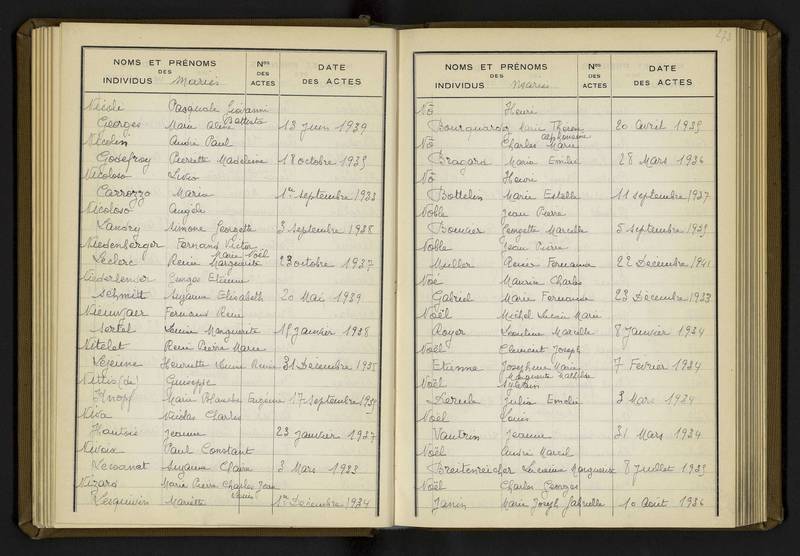 NOMS ET PRÉNOMS
DES
INDIVIDUS Mariés
Nos
DES
ACTES
DATE
DES ACTES
Nicoli Pasquale Giovanni
Battista
Georges Marie Aline 13 Juin 1939
Nicolin André Paul
Godefroy Pierrette Madeleine 18 octobre 1935
Nicoloso Livio
Carrozzo Maria 1er septembre 1933
Nicoloso Angélo
Landry Simone Georgette 3 septembre 1938
Niedenberger Fernand Victor
Marie Noël
Leclerc Renée Marguerite 23 octobre 1937
Niederlender Georges Etienne
Schmitt Suzanne Elisabeth 20 Mai 1939
Fernand René
Louise Marguerite 15 janvier 1938
Nitelet René Pierre Marie
Lejeune Henriette Renée 31 Décembre 1935
Nittis (de) Giuseppe
Knopf Marie Blanche Eugénie 17 septembre
Niva Nicolas Charles
Hautois Jeanne 23 janvier 1937
Nivoix Paul Constant
Suzanne Claire 3 Mars 1933
Nizard Marie Pierre Charles Jean
Louis
Lesquivin Mariette 1er Décembre 1934
273
NOMS ET PRÉNOMS
DES
INDIVIDUS Mariés
Nos
DES
ACTES
DATE
DES ACTES
Nô Henri
Marie Thérèse 20 Avril 1935
Alphonsine
Nô Charles Marie
Bragard Maria Emilie 28 Mars 1936
Nô Henri
Bottelin Marie Estelle 11 septembre 1937
Noble Jean Pierre
Bouvier Georgette Marcelle 5 septembre 1935
Noble Jean Pierre
Muller Renée Fernande 22 Décembre 1941
Noé Maurice Charles
Gabriel Marie Fernande 23 Décembre 1933
Noël Michel Lucien Marie
Royer Léontine Marcelle 8 janvier 1934
Noël Clément Joseph
Etienne Joséphine Marie 7 Février 1934
Marguerite Mathilde
Noël Sylvain
Julia Emélie 3 Mars 1934
Noël Louis
Vautrin Jeanne 31 Mars 1934
Noël André Marcel
Breitenreicher Lucienne Marguerite 8 Juillet 1935
Noël Charles Georges
Janin Marie Joseph Gabrielle 10 Août 1936